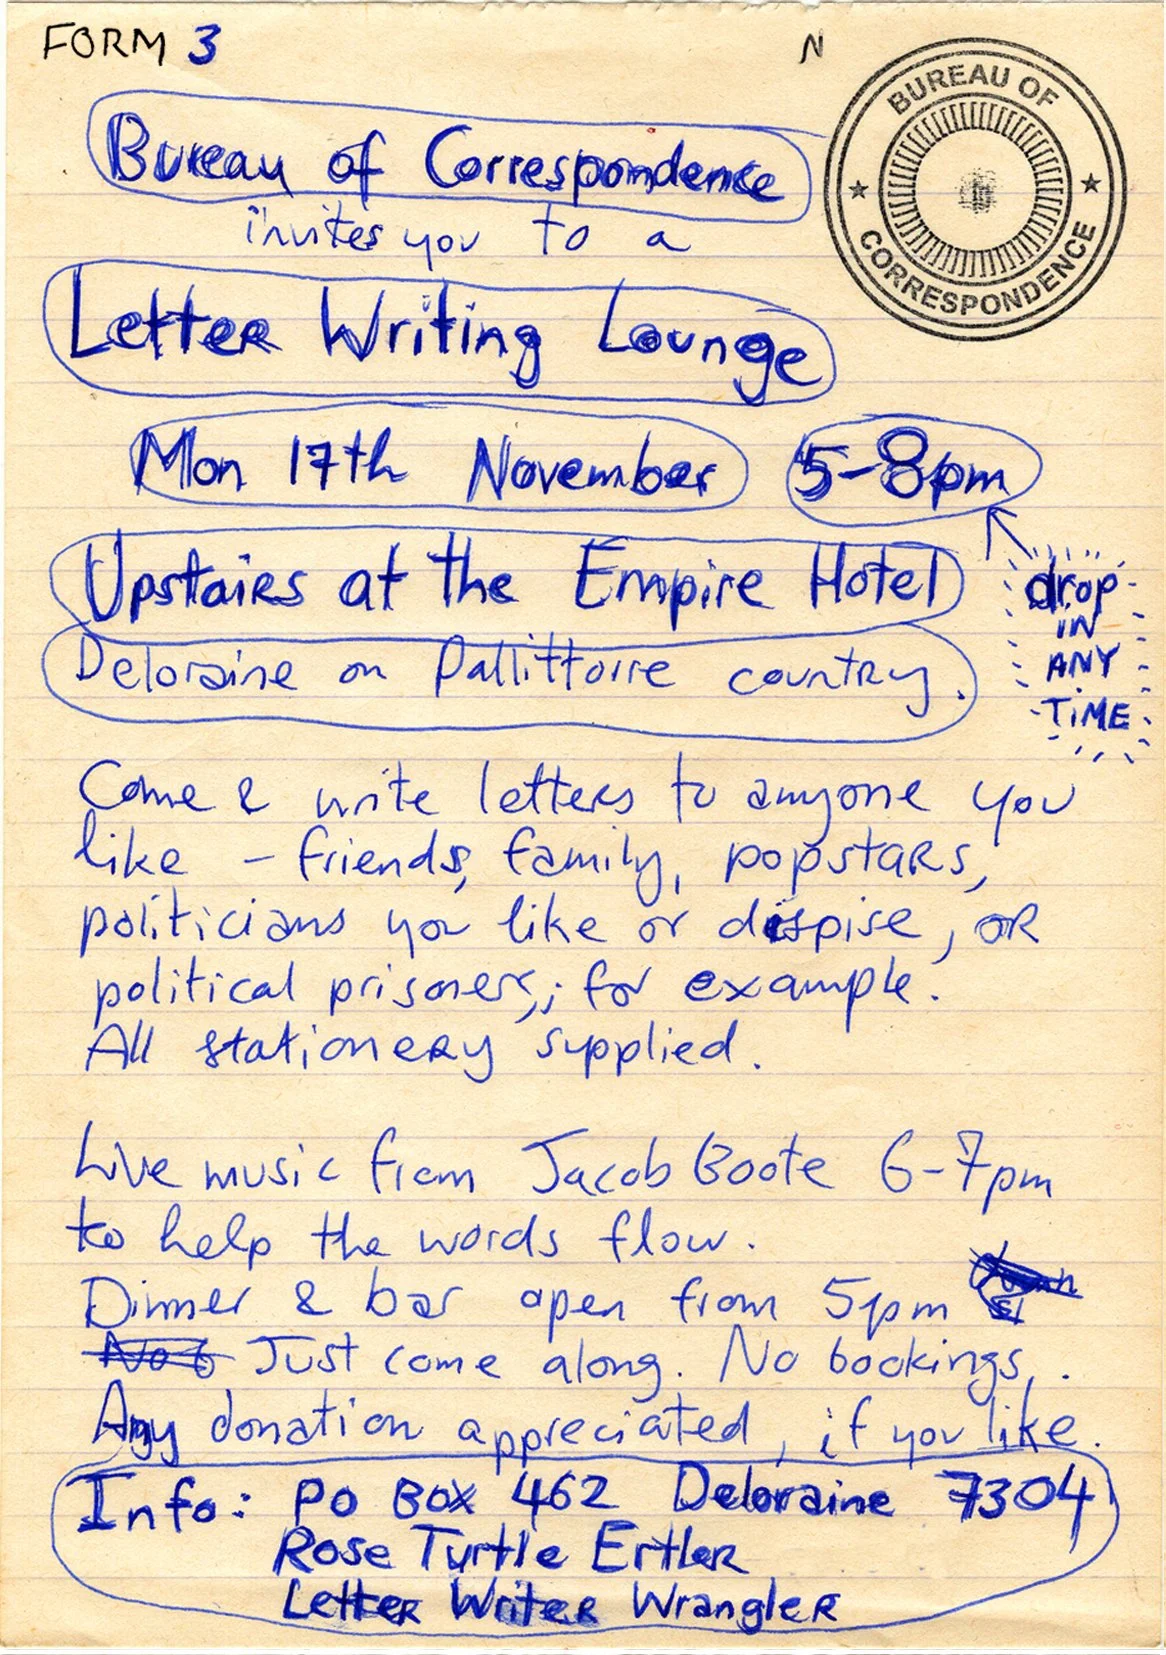 FORM 3
N
BUREAU OF
CORRESPONDENCE
Bureau of Correspondence
invites you to a
Letter Writing Lounge
Mon 17th November 5-8pm
Upstairs at the Empire Hotel
drop
IN
ANY
TIME
Deloraine on Pallittorre country.
Come & write letters to anyone you
like - friends, family, popstars,
politicians you like or dispise, or
political prisoners, for example.
All stationery supplied.
Live music from Jacob Boote 6-7pm
to help the words flow.
Dinner & bar open from 5pm
Just come along. No bookings.
Any donation appreciated, if you like.
Info: PO BOX 462 Deloraine 7304
Rose Turtle Ertler
Letter Writer Wrangler